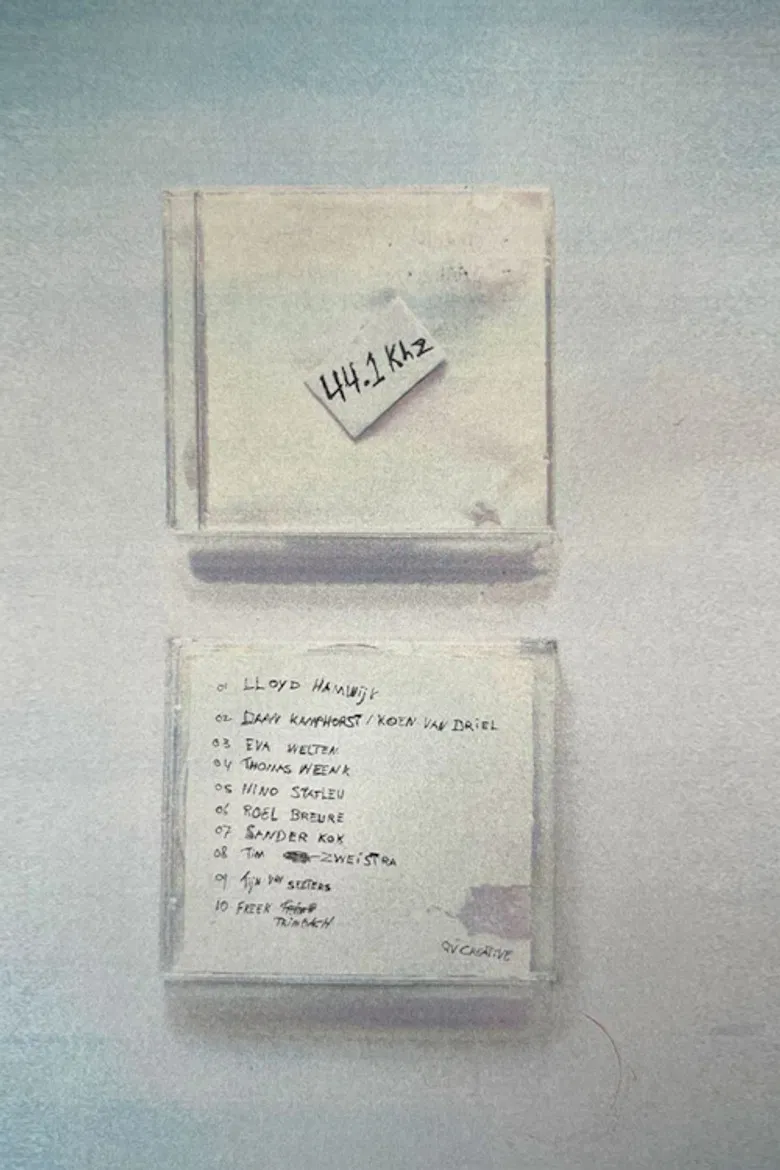 44.1Khz
01 LLOYD HAMWIJK
02 DAAN KAMPHORST / KOEN VAN DRIEL
03 EVA WELTEN
04 THOMAS WEENK
05 NINO STATLEU
06 ROEL BREURE
07 SANDER KOK
08 TIM ZWEISTRA
09 Tijn van SEETERS
10 FREEK
TRIMBACH
QV CREATIVE